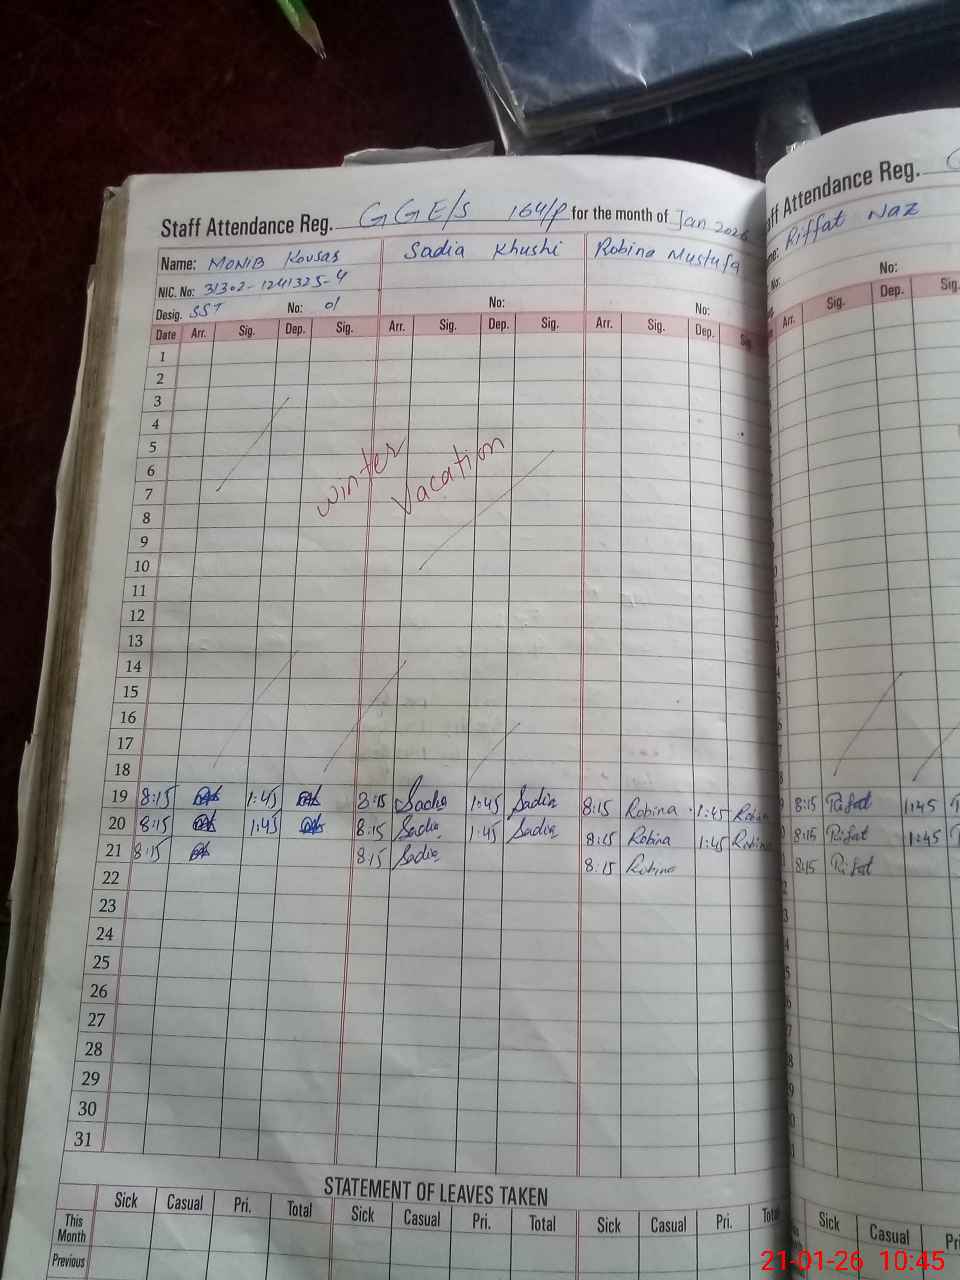 Staff Attendance Reg. GGE/S 164/P for the month of Jan 2026
Name: MONIB Kousas Sadia Khushi Robina Mustufa
NIC. No: 31302-1241325-4
Desig. SST No: 01 No: No:
Date Arr. Sig. Dep. Sig. Arr. Sig. Dep. Sig. Arr. Sig. Dep. Sig
1
2
3
4
5
6
7
winter vacation
8
9
10
11
12
13
14
15
16
17
18
19 8:15 1:45 8:15 Sadia 1:45 Sadia 8:15 Robina 1:45 Robin
20 8:15 1:45 8:15 Sadia 1:45 Sadia 8:15 Robina 1:45 Robin
21 8:15 8:15 Sadia 8:15 Robina
22
23
24
25
26
27
28
29
30
31
STATEMENT OF LEAVES TAKEN
Sick Casual Pri. Total Sick Casual Pri. Total Sick Casual Pri. Total
This Month
Previous
aff Attendance Reg.
me: Riffat Naz
No:
No:
Arr. Sig. Dep. Sig.
8:15 Rifat 1:45
8:15 Rifat 1:45
8:15 Rifat
Sick Casual Pri
21-01-26 10:45